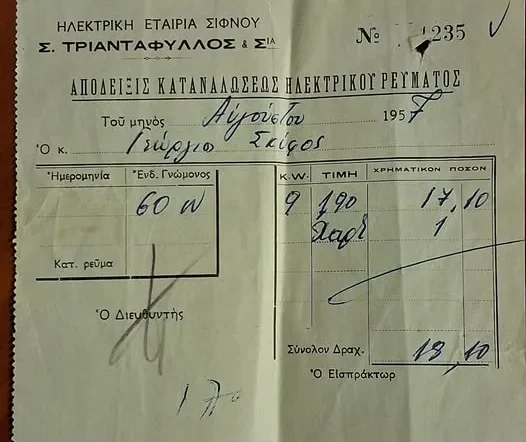 ΗΛΕΚΤΡΙΚΗ ΕΤΑΙΡΙΑ ΣΙΦΝΟΥ
Σ. ΤΡΙΑΝΤΑΦΥΛΛΟΣ & ΣΙΑ
№ 1235
ΑΠΟΔΕΙΞΙΣ ΚΑΤΑΝΑΛΩΣΕΩΣ ΗΛΕΚΤΡΙΚΟΥ ΡΕΥΜΑΤΟΣ
Τοῦ μηνὸς Αὐγούστου 1957
Ὁ κ. Γεώργιο
Ἡμερομηνία Ἔνδ. Γνώμονος
60 W
Κατ. ρεῦμα
K.W. ΤΙΜΗ ΧΡΗΜΑΤΙΚΟΝ ΠΟΣΟΝ
9 1,90 17,10
Χαρτ 1
Ὁ Διευθυντής
Σύνολον Δραχ. 18,10
Ὁ Εἰσπράκτωρ